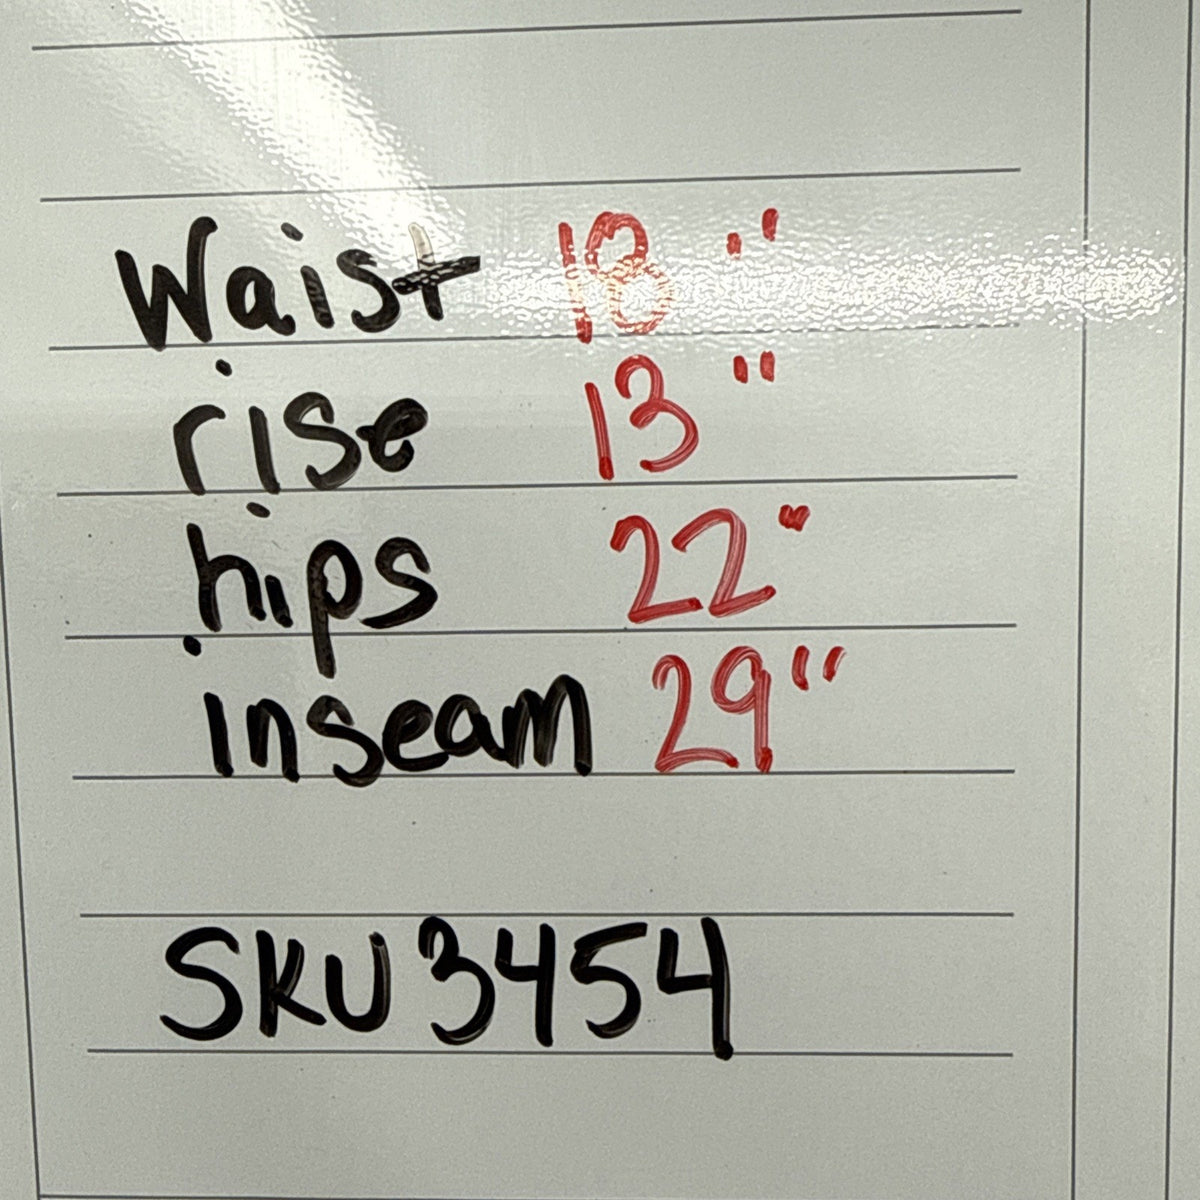 Waist 18"
rise 13"
hips 22"
inseam 29"
SKU 3454